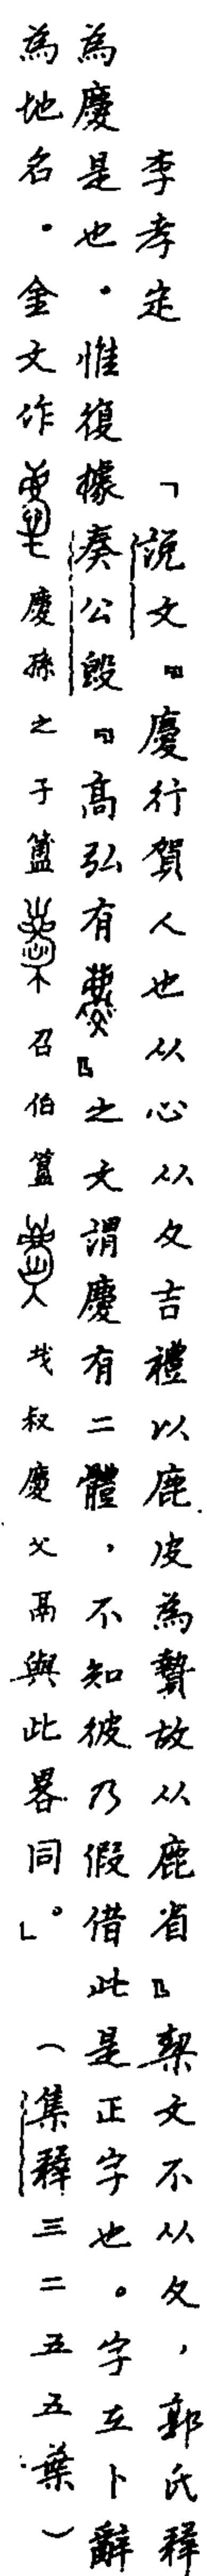 李孝定　「說文『慶行賀人也从心从夂吉禮以鹿皮為贄故从鹿省』栔文不从夂，郭氏釋
為慶是也．惟復據秦公𣪘『高弘有慶』之文謂慶有二體，不知彼乃假借此是正字也。字在卜辭
為地名．金文作 慶孫之子簠 召伯簋 㦰叔慶父鬲與此畧同。」（集釋三二五五葉）